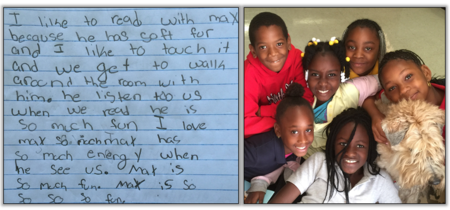 I like to read with max
because he has soft fur
and I like to touch it
and we get to walk
around the room with
him. he listen too us
when we read he is
so much fun I love
max so much max has
so much energy when
he see us. Max is
so much fun. Max is so
so so so fun.